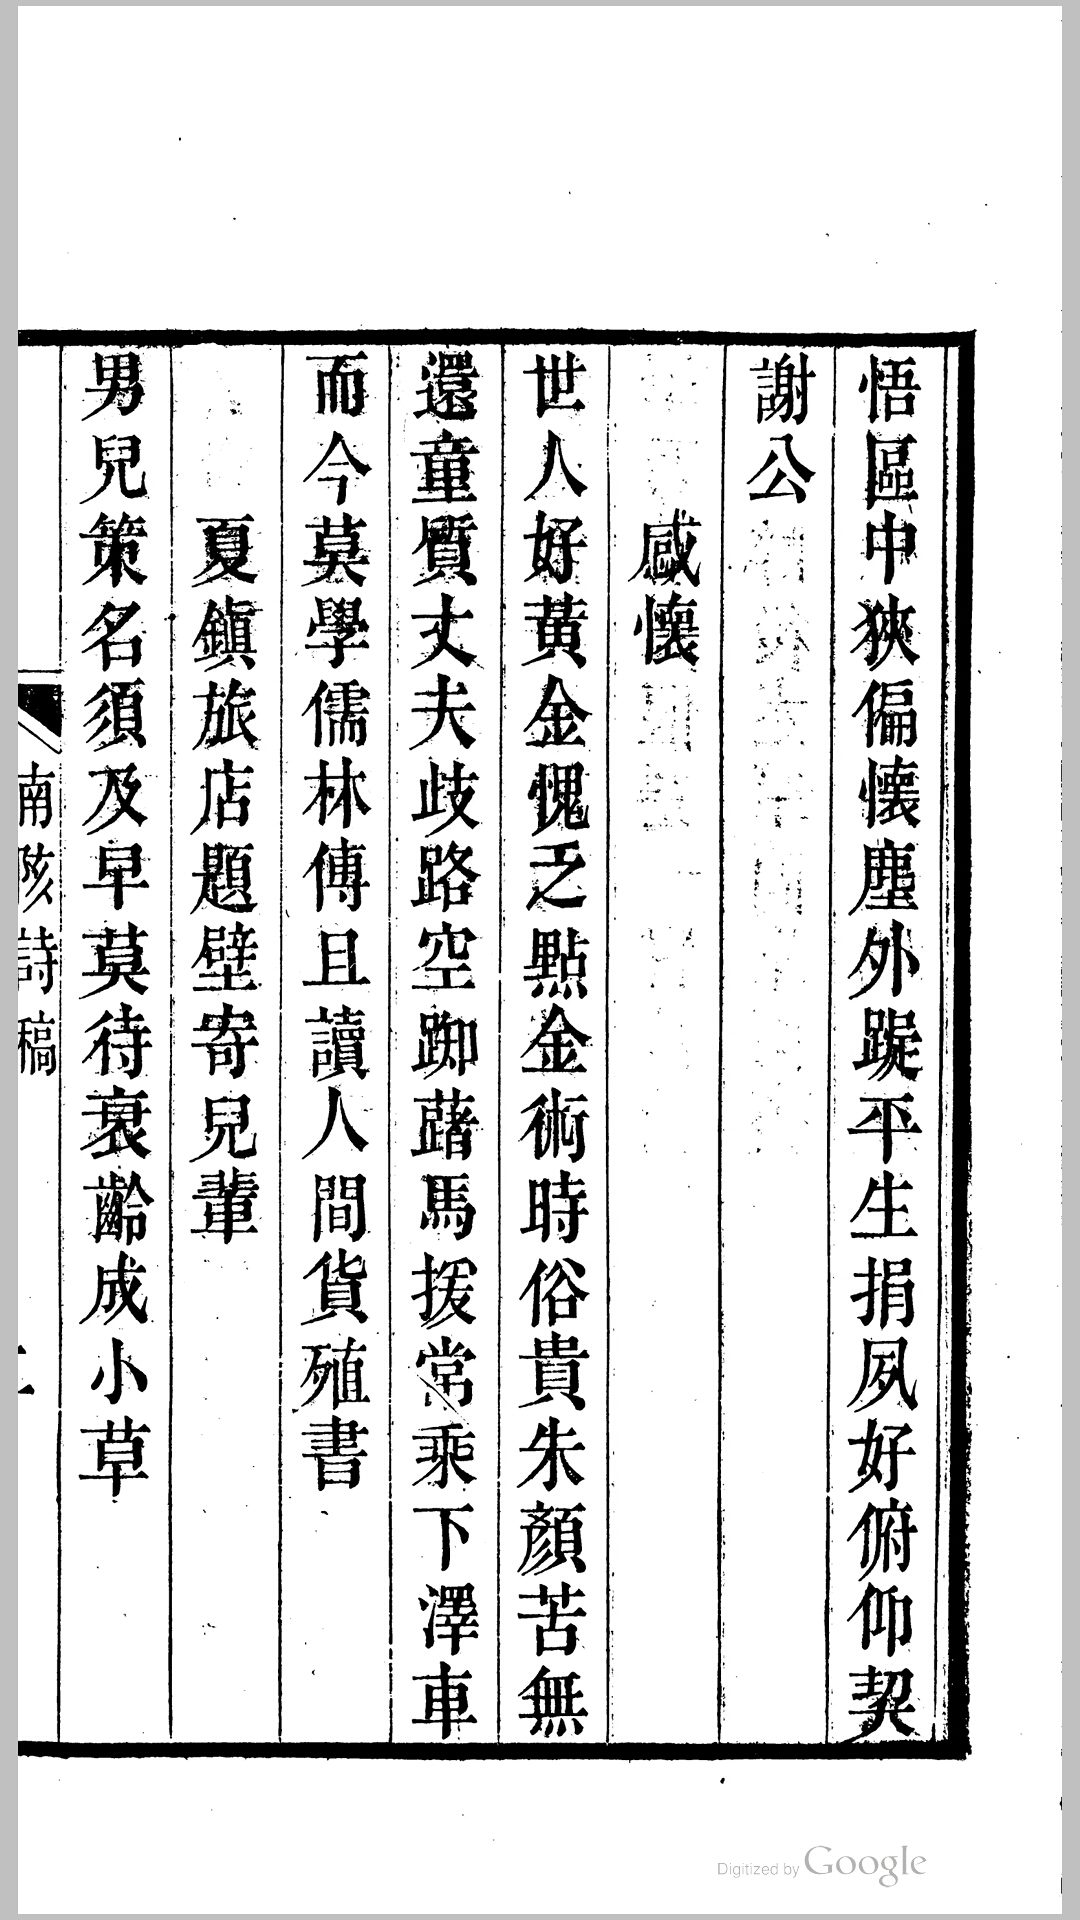 悟區中狹偏懷塵外蹤平生捐夙好俯仰契
謝公
感懷
世人好黃金愧乏點金術時俗貴朱顏苦無
還童質丈夫歧路空踟躇馬援常乘下澤車
而今莫學儒林傳且讀人間貨殖書
夏鎭旅店題壁寄兒輩
男兒策名須及早莫待衰齡成小草
南陔詩稿
Digitized by Google